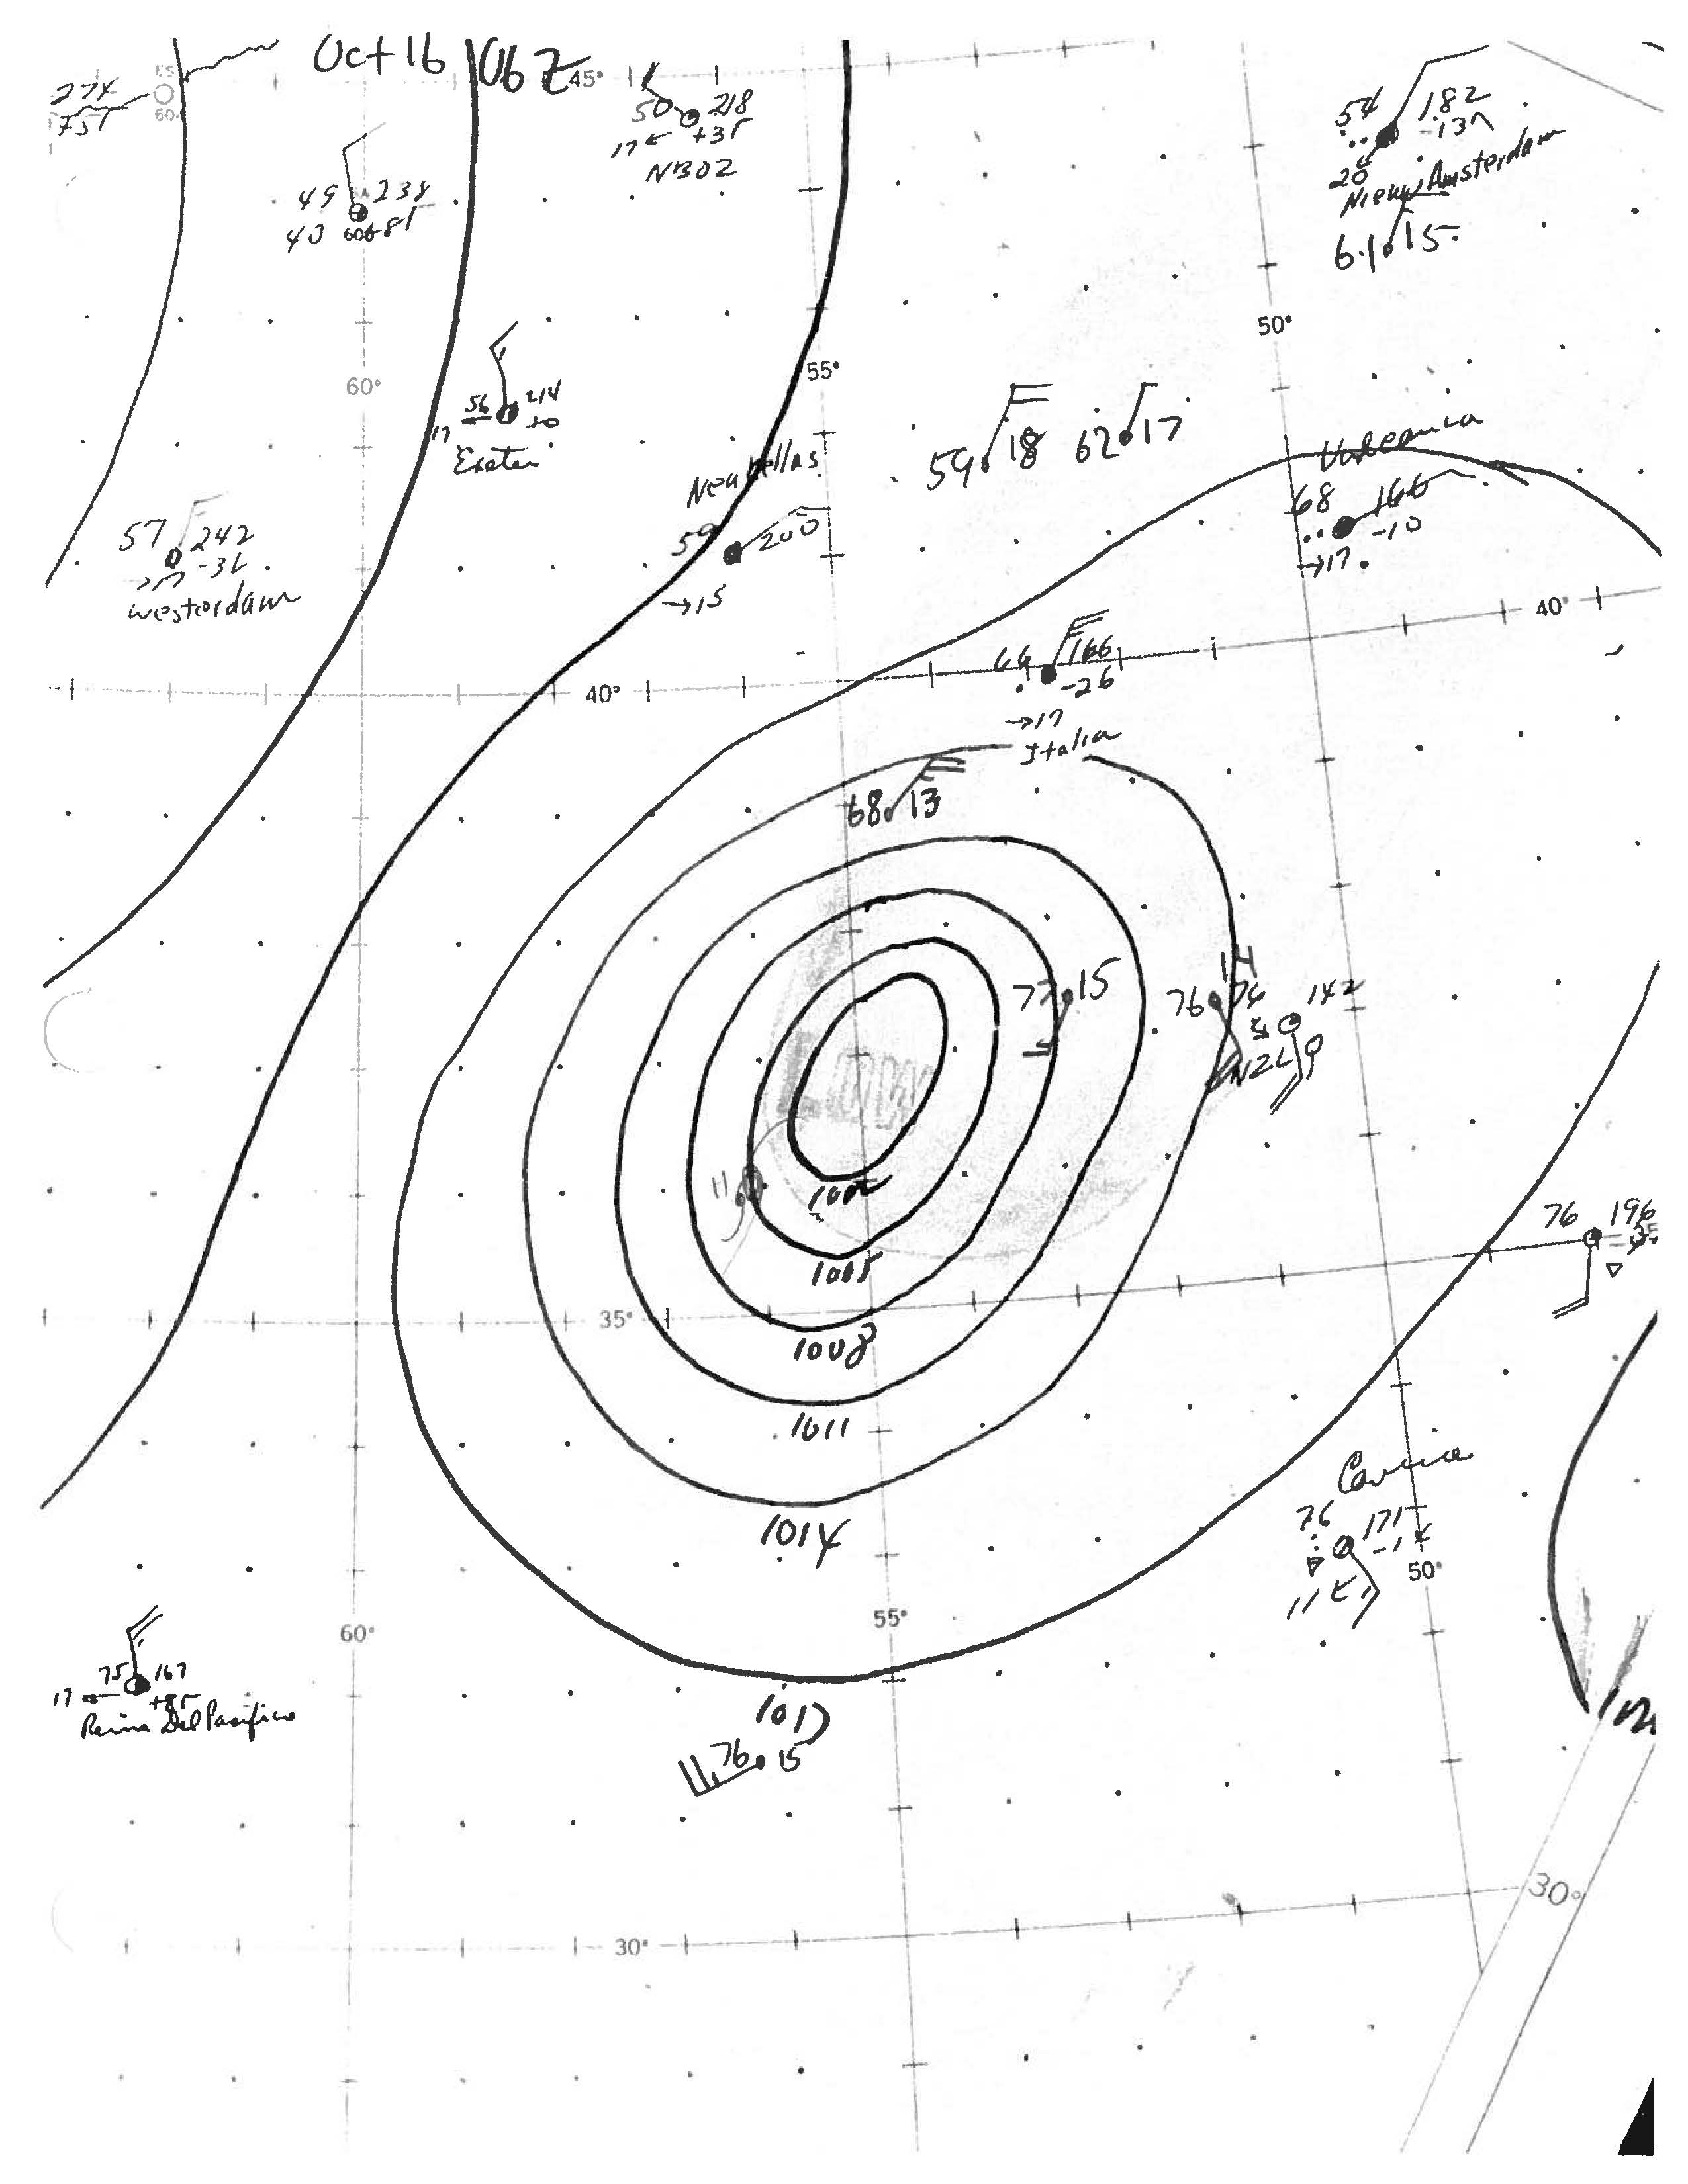 Oct 16 06Z
45°
274
60
50 218
17 +35
NB02
54 182
-13
20
Nieuw Amsterdam
61 15
49 238
40
50°
60°
55°
56 214
17 +0
Exeter
59 18
62 17
Vulcania
68 166
-10
→17
Neuhellas
59 200
→15
57 242
Westerdam
40°
40°
66 166
-26
→17
Italia
68 13
77 15
14
76 76
142
Low
11
1002
1005
76 196
35°
1008
1011
Carinia
76 171
-14
11
50°
1014
60°
55°
75 167
17 +85
Reina Del Pacifico
1017
76 15
30°
30°